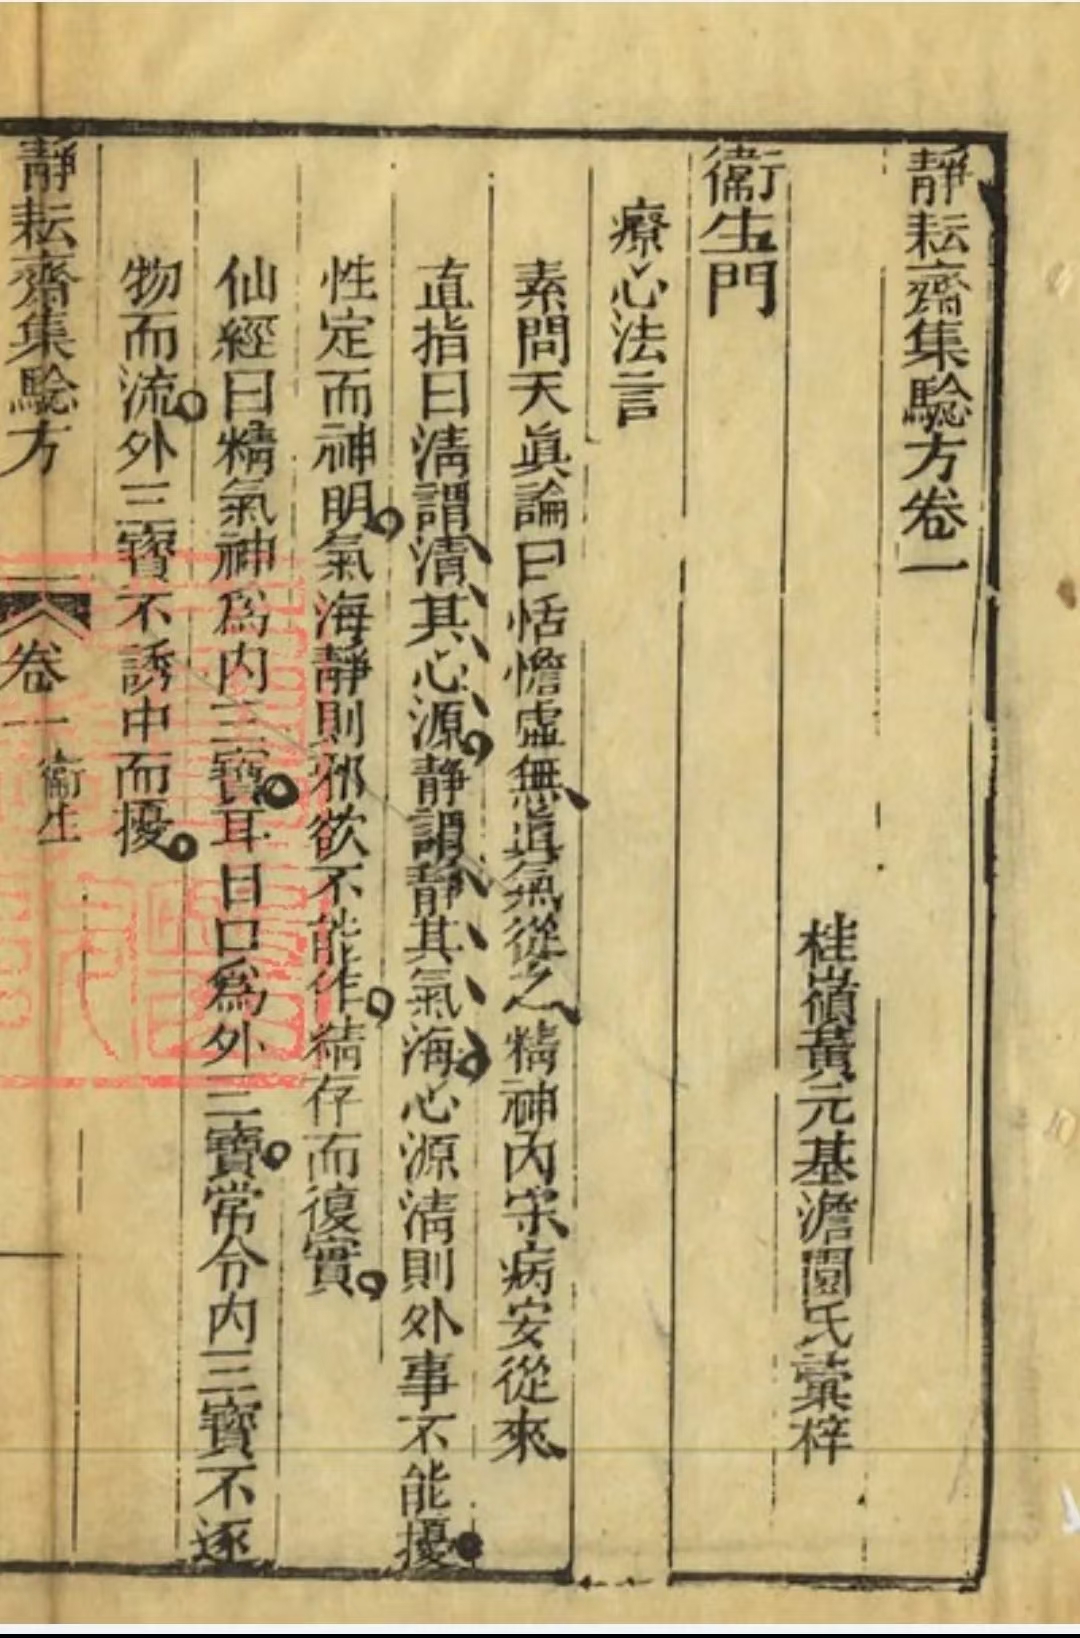 靜耘齋集驗方卷一
桂嶺黃元基澹園氏彚梓
衞生門
療心法言
素問天眞論曰恬憺虛無眞氣從之精神內守病安從來
直指曰淸謂清其心源靜謂靜其氣海心源淸則外事不能擾
性定而神明氣海靜則邪欲不能作精存而復實
仙經曰精氣神爲內三寶耳目口爲外三寶常令內三寶不逐
物而流外三寶不誘中而擾
靜耘齋集驗方 卷一 衞生